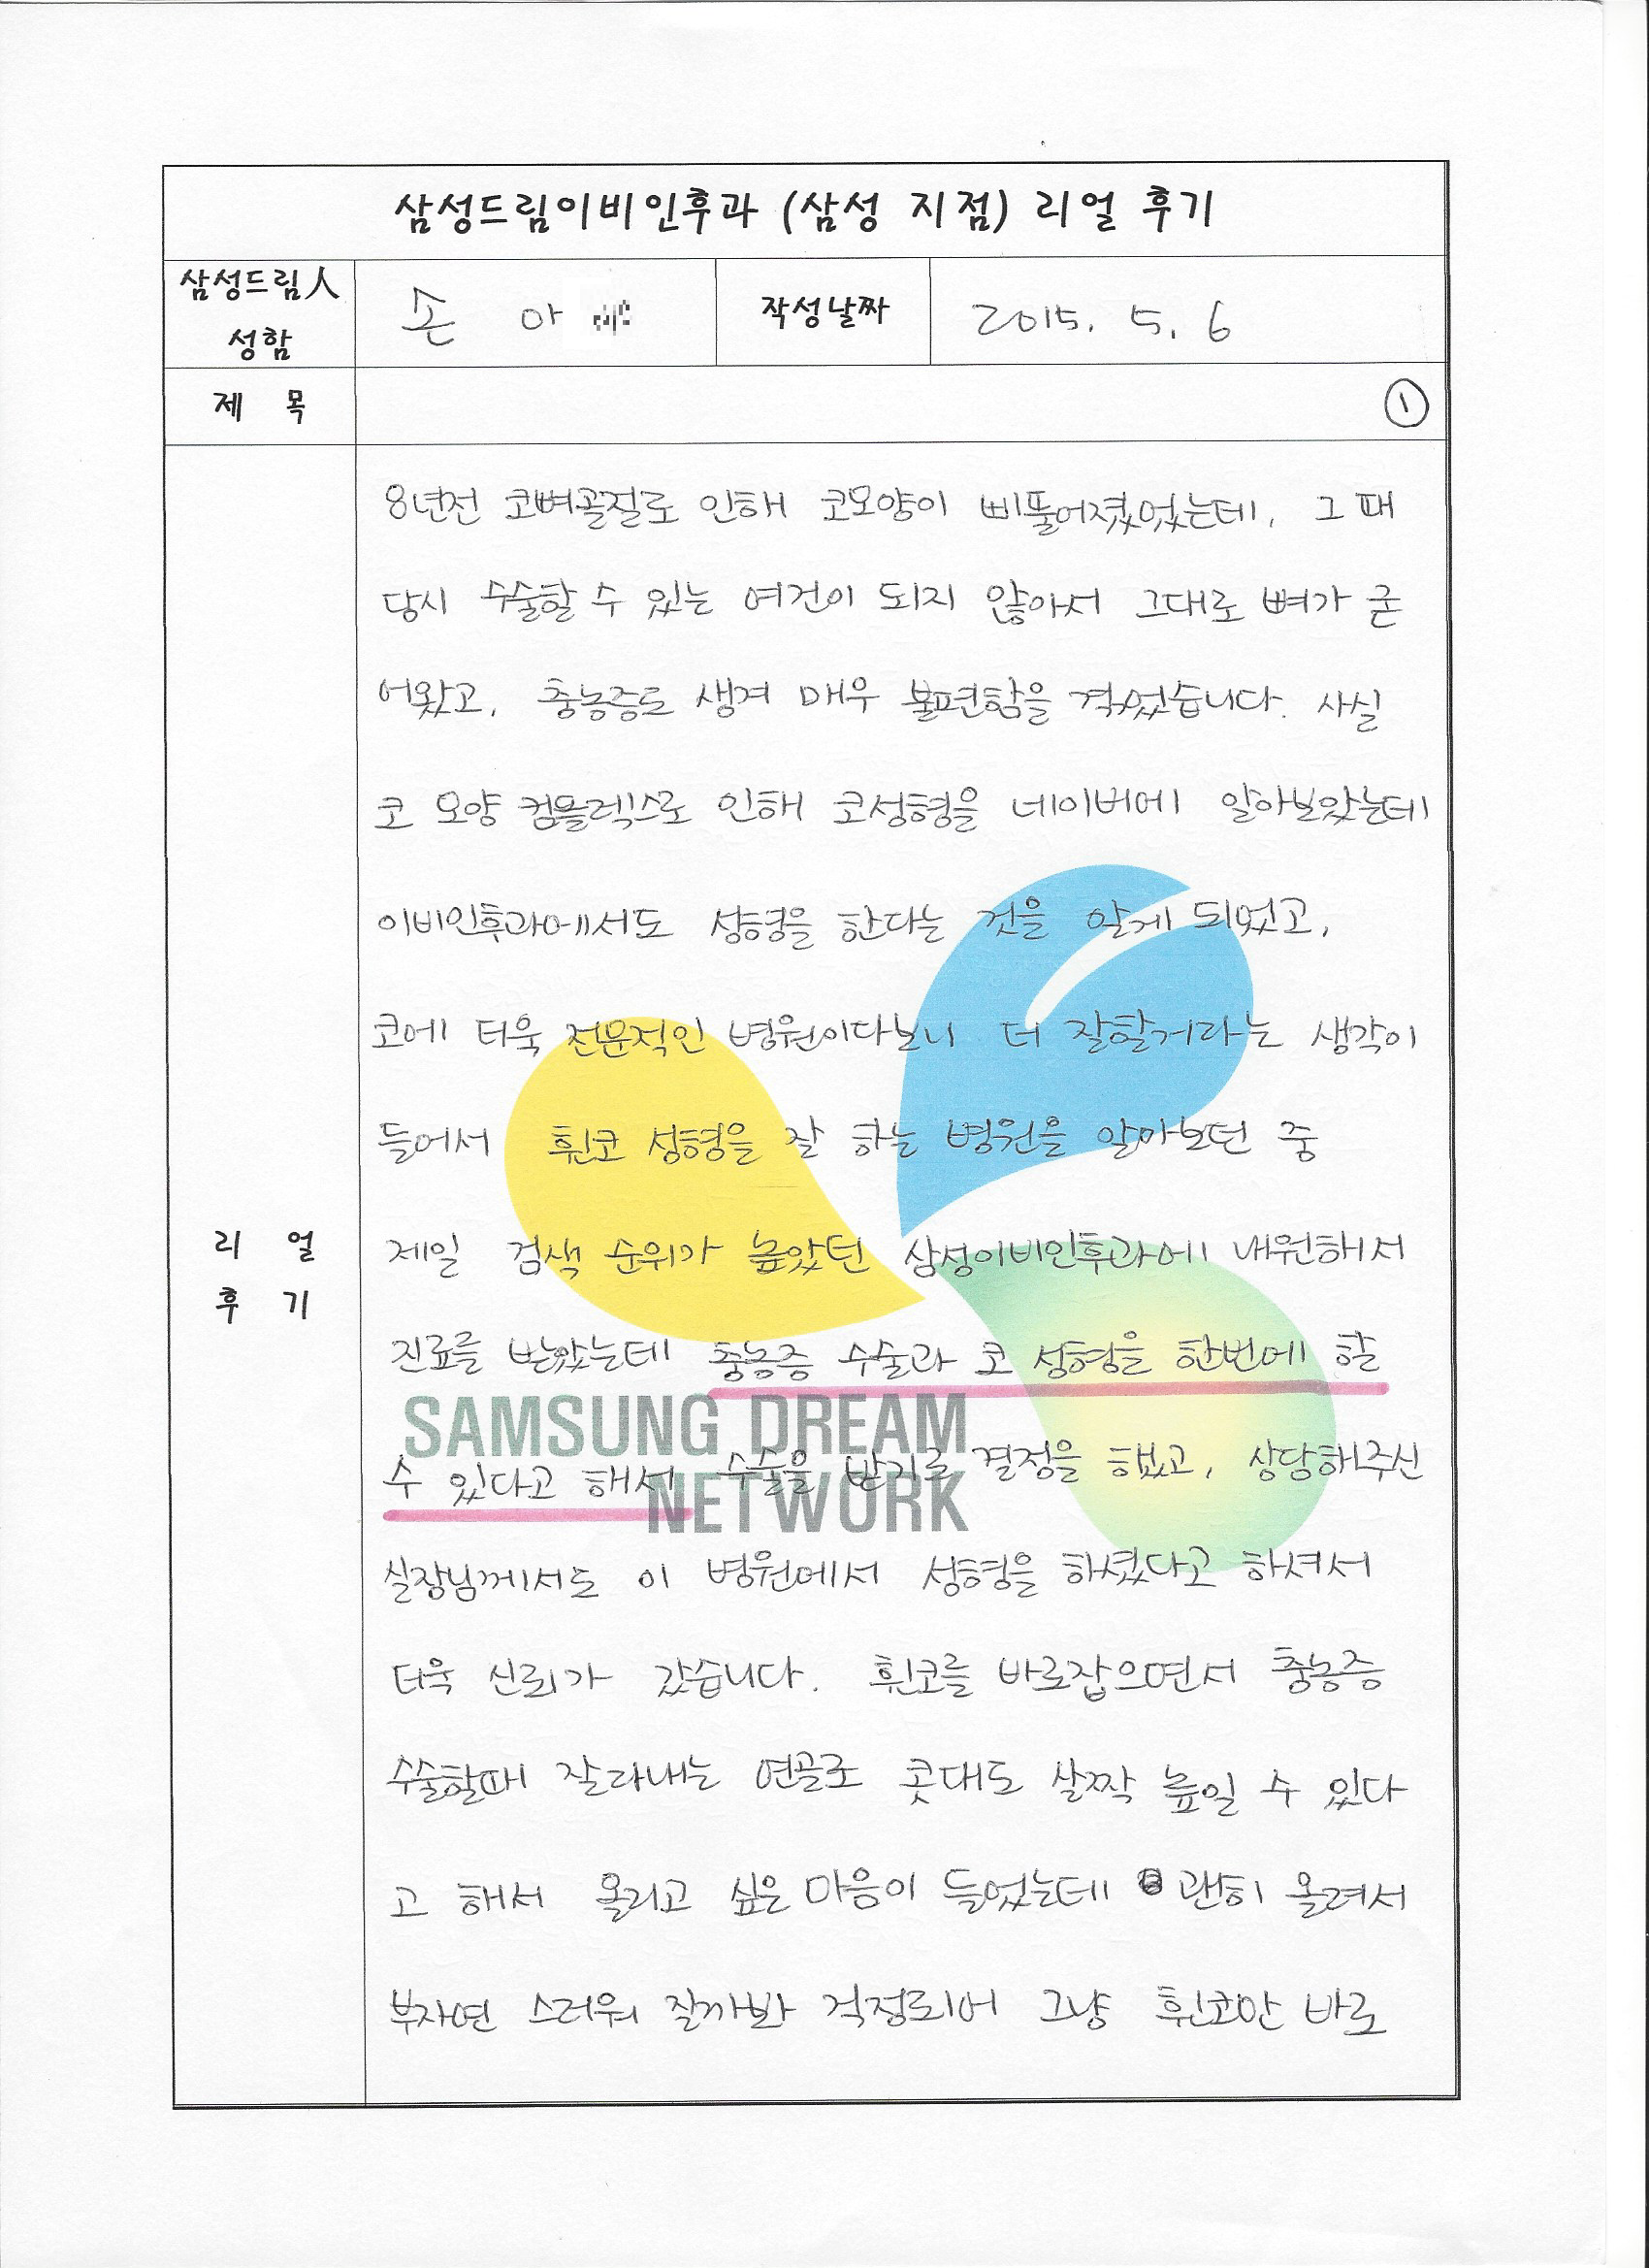 삼성드림이비인후과 (삼성 지점) 리얼 후기
삼성드림人
성함
손 아
작성날짜
2015. 5. 6
제 목
①
8년전 코뼈골절로 인해 코모양이 삐뚤어졌었는데, 그 때
당시 수술할 수 있는 여건이 되지 않아서 그대로 뼈가 굳
어왔고, 충농증도 생겨 매우 불편함을 격었습니다. 사실
코 모양 컴플렉스로 인해 코성형을 네이버에 알아보았는데
이비인후과에서도 성형을 한다는 것을 알게 되었고,
코에 더욱 전문적인 병원이다보니 더 잘할거라는 생각이
들어서 휜코 성형을 잘 하는 병원을 알아보던 중
리 얼
후 기
제일 검색 순위가 높았던 삼성이비인후과에 내원해서
진료를 받았는데 충농증 수술과 코 성형을 한번에 할
SAMSUNG DREAM
NETWORK
수 있다고 해서 수술을 받기로 결정을 했고, 상담해주신
실장님께서도 이 병원에서 성형을 하셨다고 하셔서
더욱 신뢰가 갔습니다. 휜코를 바로잡으면서 충농증
수술할때 잘라내는 연골로 콧대도 살짝 높일 수 있다
고 해서 올리고 싶은 마음이 들었는데 괜히 올려서
부자연 스러워 질까봐 걱정되어 그냥 휜코만 바로